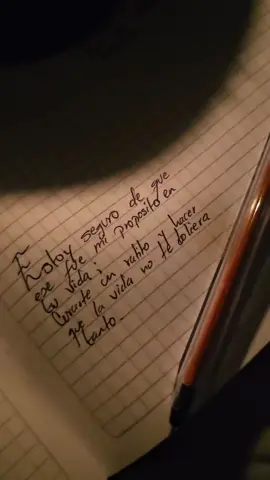 Estoy seguro de que
ese fue mi proposito en
tu vida;
Curarte un ratito y hacer
que la vida no te doliera
tanto